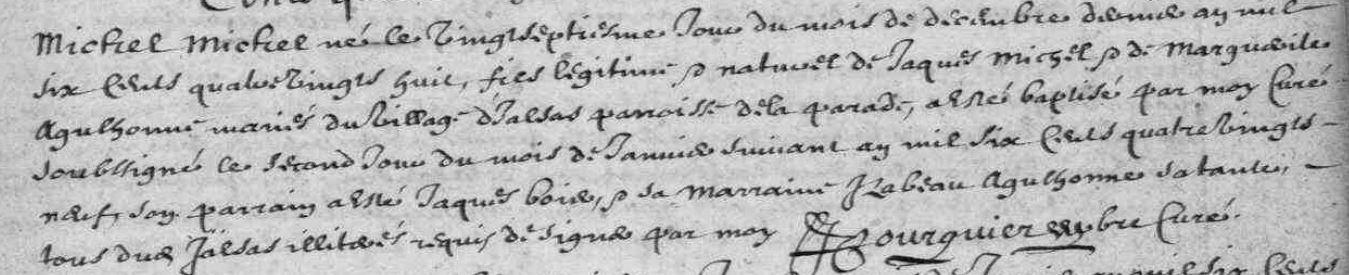 Michel Michel né le vingtseptiesme Jour du mois de decembre dernier an mil
six cents quatrevingts huit, fils légitime & naturel de Jaques Michel & de Marguerite
Agulhonne mariés du village d'Jalsas parroisse de la parade, a esté baptisé par moy Curé
soubsigné le second Jour du mois de Janvier suivant an mil six cents quatrevingts
neuf, son parrain a esté Jaques boier, & sa marraine Izabeau Agulhonne sa tante,
tous dud Jalsas illiterés requis de signer par moy Fourquier Curé.